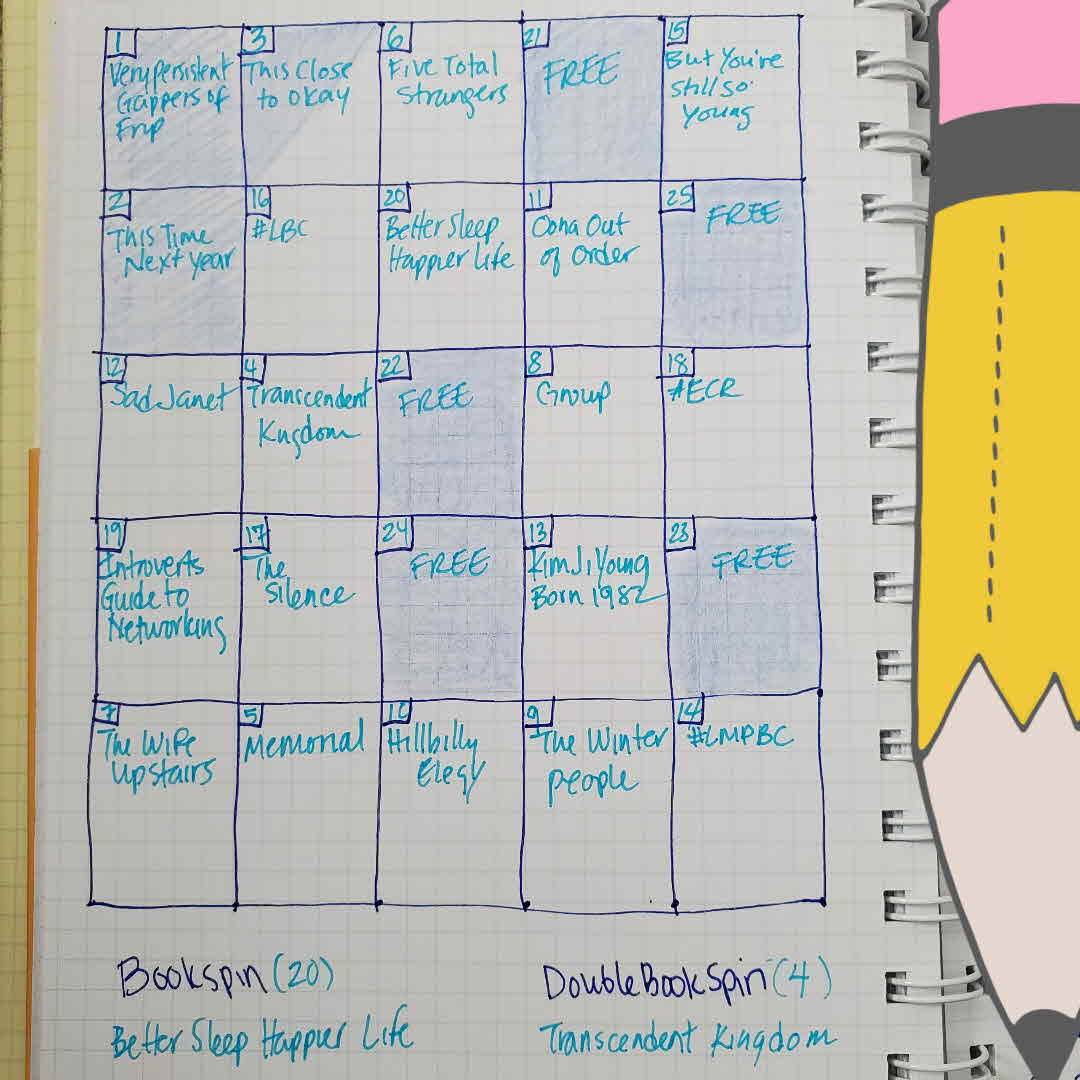 1
Very persistent
Gappers of
Frip
3
This Close
to Okay
6
Five Total
Strangers
21
FREE
15
But You're
Still So
Young
2
This Time
Next year
16
#LBC
20
Better Sleep
Happier Life
11
Oona Out
of Order
25
FREE
12
Sad Janet
4
Transcendent
Kngdom
22
FREE
8
Group
18
#ECR
19
Introverts
Guide to
Networking
17
The
Silence
24
FREE
13
Kim Ji Young
Born 1982
23
FREE
7
The Wife
Upstairs
5
Memorial
10
Hillbilly
Elegy
9
The Winter
people
14
#LMPBC
Bookspin (20)
DoubleBookSpin (4)
Better Sleep Happier Life
Transcendent Kingdom